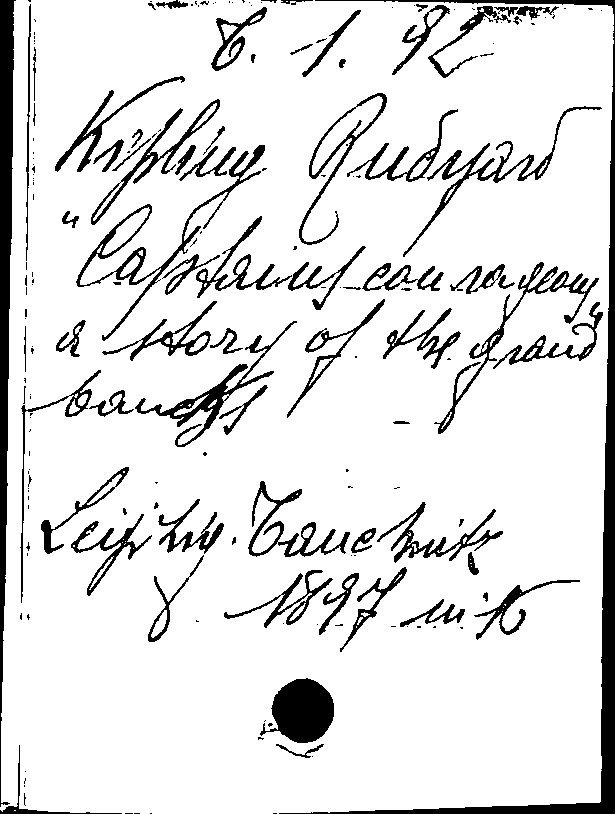 6. 1. 92
Kipling Rudyard
"Captains courageous"
a story of the grand
bancks
Leipzig. Tauchnitz
1897 in 16